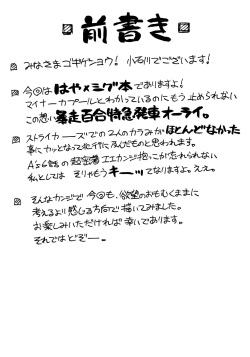 前書き
みなさまゴキゲンヨウ! 小石川でございます!
今回ははや×シグ本でありますよ!
マイナーカプールとわかっているのにもう止められない
この想い暴走百合特急発車オーライ。
ストライカーーズでの2人のカラみがほとんどなかった
事にカッとなって犯行に及んだものと思われます。
A's6話の超密着エエカンジ抱っこが忘れられない
私としては そりゃもうキーッてなりますよ。ええ。
そんなカンジで今回も、欲望のおもむくままに
考えるより感じる方向で描いてみました。
お楽しみいただければ幸いです。
それではどぞー。